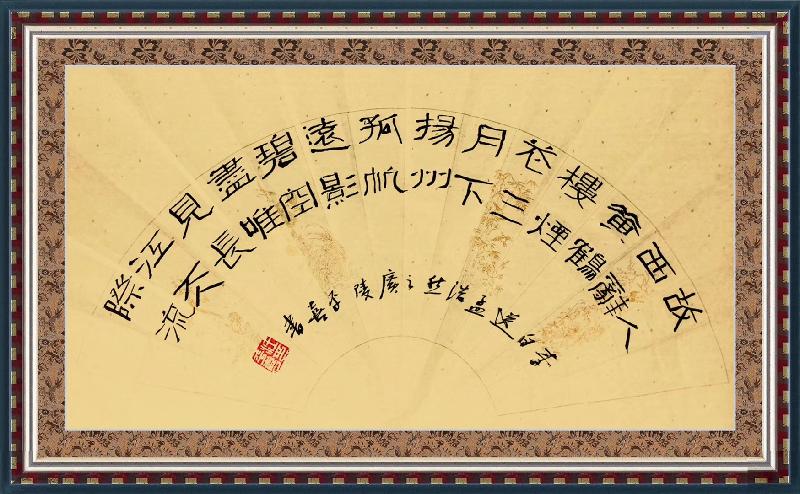 故人
西辭
黃鶴
樓煙
花三
月下
揚州
孤帆
遠影
碧空
盡唯
見長
江天
際流
李白送孟浩然之廣陵 喜書